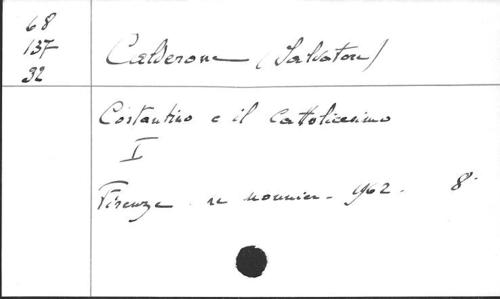 68
137
32
Calderone (Salvatore)
Costantino e il Cattolicesimo
I
Firenze. Le Monnier. 1962. 8°